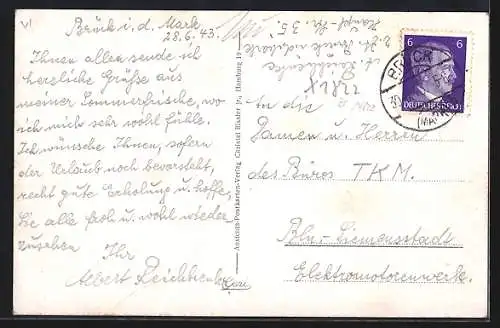 Brück i. d. Mark
28.6.43.
Ihnen allen sende ich
herzliche Grüße aus
meiner Sommerfrische, wo
ich mich sehr wohl fühle.
Ich wünsche Ihnen, sofern
der Urlaub noch bevorsteht,
recht gute Erholung u. hoffe,
Sie alle froh u. wohl wieder
zusehen
Ihr
Albert Reichhenke
Ansicht-Postkarten-Verlag Hamburg 19
z. Zt. Brück i. d. Mark
Str. 35
An die
Damen u. Herren
des Büros TKM.
Bln-Siemensstadt
Elektromotorenwerk.
6 6
DEUTSCHES REICH
BRÜCK
(MARK)